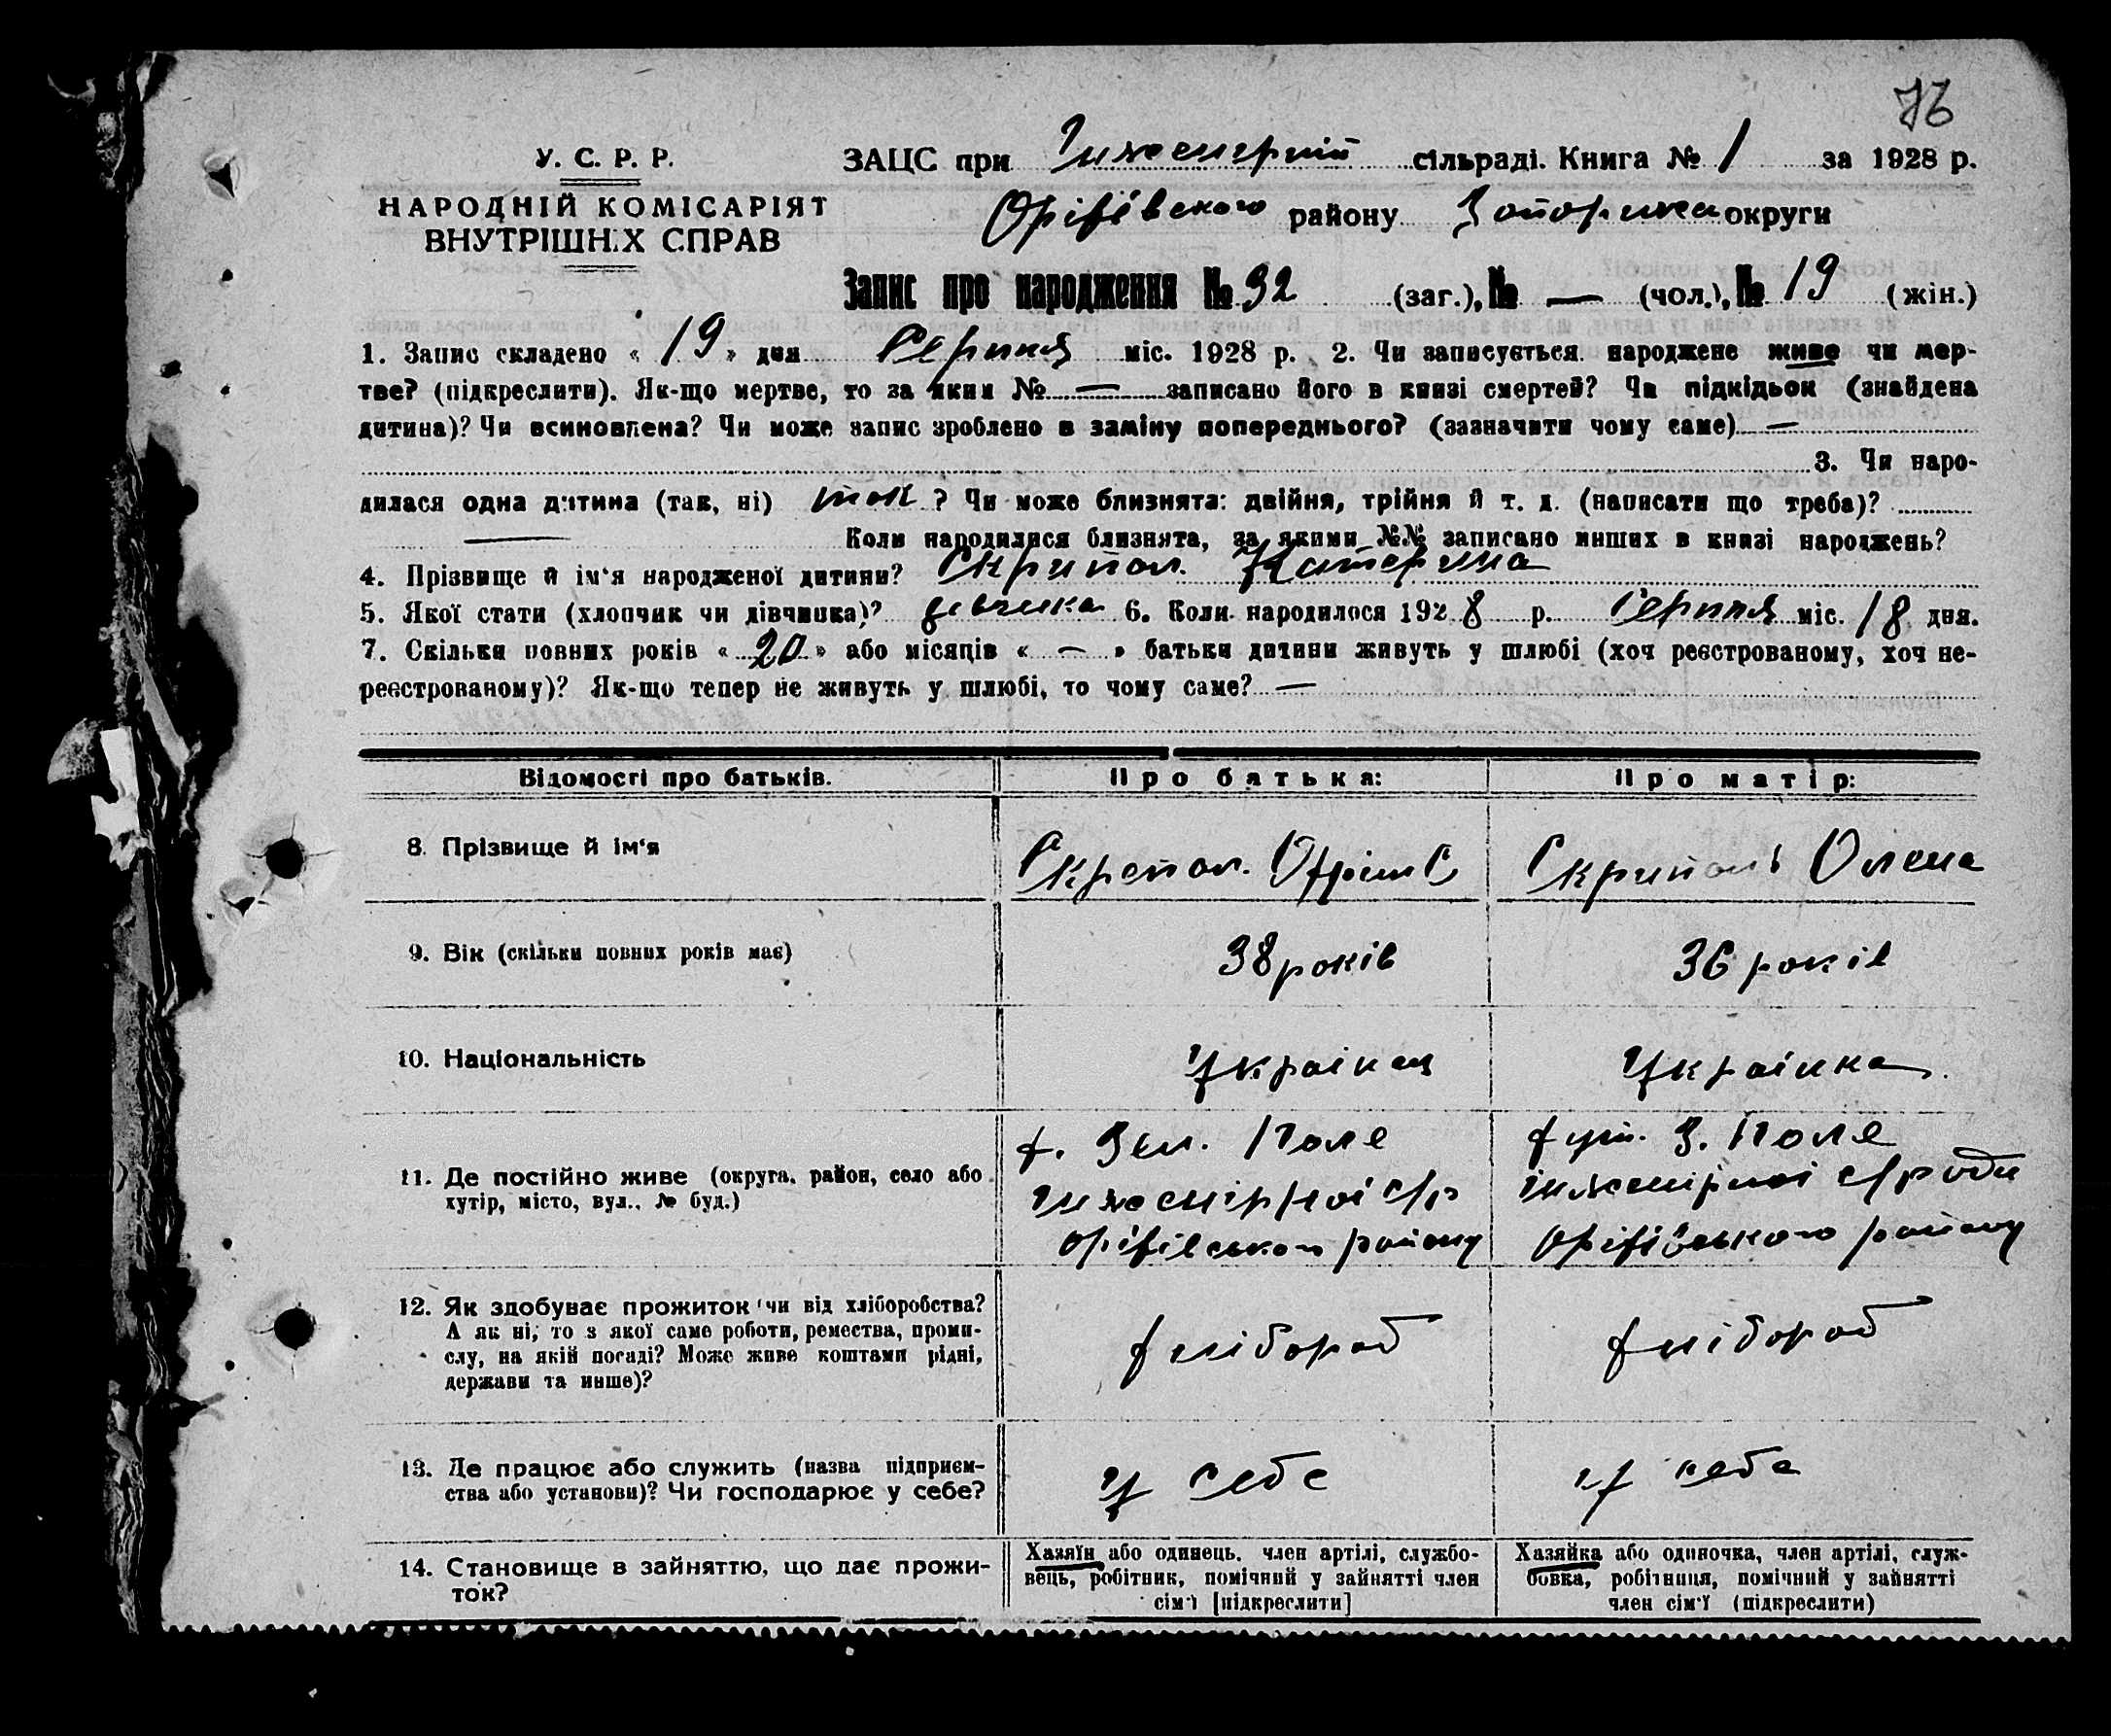 76
У. С. Р. Р.
НАРОДНІЙ КОМІСАРІЯТ
ВНУТРІШНІХ СПРАВ
ЗАЦС при Інженерній сільраді. Книга № 1 за 1928 р.
Оріхівського району Запоріжжя округи
Запис про народження № 32 (заг.), № — (чол.), № 19 (жін.)
1. Запис складено « 19 » дня Серпня міс. 1928 р. 2. Чи записується народжене живе чи мер-
тве? (підкреслити). Як-що мертве, то за яким № — записано його в книзі смертей? Чи підкідьок (знайдена
дитина)? Чи всиновлена? Чи може запис зроблено в заміну попереднього? (зазначити чому саме) —
3. Чи наро-
дилася одна дитина (так, ні) так ? Чи може близнята: двійня, трійня й т. д. (написати що треба)?
— Коли народилися близнята, за якими №№ записано инших в книзі народжень?
4. Прізвище й ім'я народженої дитини? Скрипол. Катерина
5. Якої стати (хлопчик чи дівчинка)? девчинка 6. Коли народилося 1928 р. Серпня міс. 18 дня.
7. Скільки повних років « 20 » або місяців « — » батьки дитини живуть у шлюбі (хоч реєстрованому, хоч не-
реєстрованому)? Як-що тепер не живуть у шлюбі, то чому саме? —
Відомості про батьків.
Про батька:
Про матір:
8. Прізвище й ім'я
Скрепол.
Скриполь Олена
9. Вік (скільки повних років має)
38 років
36 років
10. Національність
Українец
Українка.
11. Де постійно живе (округа, район, село або
хутір, місто, вул., № буд.)
х. Зел. Поле
Інженірної с/р
Оріхівського району
хут. З. Поле
Інженірної с/ради
Оріхівського району
12. Як здобуває прожиток чи від хліборобства?
А як ні, то з якої саме роботи, ремества, проми-
слу, на якій посаді? Може живе коштами рідні,
держави та инше)?
хлібороб
хлібороб
13. Де працює або служить (назва підприєм-
ства або установи)? Чи господарює у себе?
у себе
у себе
14. Становище в зайняттю, що дає прожи-
ток?
Хазяїн або одинець, член артілі, службо-
вець, робітник, помічний у зайнятті член
сім'ї [підкреслити]
Хазяйка або одиночка, член артілі, служ-
бовка, робітниця, помічний у зайнятті
член сім'ї (підкреслити)